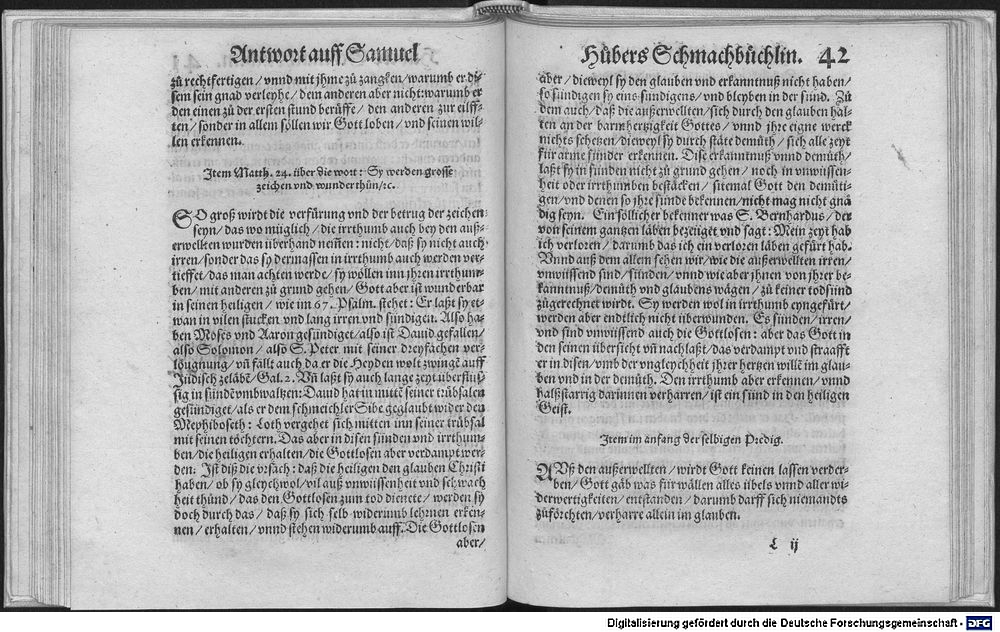 Antwort auff Samuel
zů rechtfertigen / vnnd mit jhme zů zangken / warumb er di-
sem sein gnad verleyhe / dem anderen aber nicht: warumb er
den einen zů der ersten stund berüffe / den anderen zur eilff-
ten / sonder in allem söllen wir Gott loben / vnd seinen wil-
len erkennen.
Item Matth. 24. über die wort: Sy werden grosse
zeichen vnd wunder thůn / ꝛc.
SO groß wirdt die verfürung vnd der betrug der zeichen
seyn / das wo müglich / die irrthumb auch bey den auß-
erwellten wurden überhand nem̃en: nicht / daß sy nicht auch
irren / sonder das sy dermassen in irrthumb auch werden ver-
tieffet / das man achten werde / sy wöllen inn jhren irrthum-
ben / mit anderen zů grund gehen / Gott aber ist wunderbar
in seinen heiligen / wie im 67. Psalm. stehet: Er laßt sy et-
wan in vilen stucken vnd lang irren vnd sündigen. Also ha-
ben Moses vnd Aaron gesündiget / also ist Dauid gefallen /
also Solomon / also S. Peter mit seiner dreyfachen ver-
löugnung / vn̄ fallt auch da er die Heyden wolt zwingē auff
Jüdisch zeläbē / Gal. 2. Vn̄ laßt sy auch lange zeyt überflüs-
sig in sündē vmbwaltzen: Dauid hat in mittē seiner trübsalen
gesündiget / als er dem schmeichler Sibe geglaubt wider den
Mephiboseth: Loth vergehet sich mitten inn seiner trübsal
mit seinen töchtern. Das aber in disen sünden vnd irrthum-
ben / die heiligen erhalten / die Gottlosen aber verdampt wer-
den: Ist diß die vrsach: daß die heiligen den glauben Christi
haben / ob sy gleychwol / vil auß vnwissenheit vnd schwach
heit thůnd / das den Gottlosen zum tod dienete / werden sy
doch durch das / daß sy sich selb widerumb lehrnen erken-
nen / erhalten / vnnd stehen widerumb auff. Die Gottlosen
aber /
Hůbers Schmachbüchlin. 42
aber / dieweyl sy den glauben vnd erkanntnuß nicht haben /
so sündigen sy eins sündigens / vnd bleyben in der sünd. Zů
dem auch / daß die außerwellten / sich durch den glauben hal-
ten an der barmhertzigkeit Gottes / vnnd jhre eigne werck
nichts schetzen / dieweyl sy durch stäte demůth / sich alle zeyt
für arme sünder erkennen. Dise erkanntnuß vnnd demůth /
laßt sy in sünden nicht zů grund gehen / noch in vnwissen-
heit oder irrthumben bestäcken / sitemal Gott den demüti-
gen / vnd denen so jhre sünde bekennen / nicht mag nicht gnä
dig seyn. Ein söllicher bekenner was S. Bernhardus / der
von seinem gantzen läben bezeüget vnd sagt: Mein zeyt hab
ich verloren / darumb das ich ein verloren läben gefürt hab.
Vnnd auß dem allem sehen wir / wie die außerwellten irren /
vnwissend sind / sünden / vnnd wie aber jhnen von jhrer be-
kanntnuß / demůth vnd glaubens wägen / zů keiner todsünd
zůgerechnet wirdt. Sy werden wol in irrthumb eyngefürt /
werden aber endtlich nicht überwunden. Es sünden / irren /
vnd sind vnwissend auch die Gottlosen: aber das Gott in
den seinen übersicht vn̄ nachlaßt / das verdampt vnd straafft
er in disen / vmb der vngleychheit jhrer hertzen willē im glau-
ben vnd in der demůth. Den irrthumb aber erkennen / vnnd
halßstarrig darinnen verharren / ist ein sünd in den heiligen
Geist.
Item im anfang der selbigen Predig.
AVß den außerwellten / wirdt Gott keinen lassen verder-
ben / Gott gäb was für wällen alles übels vnnd aller wi-
derwertigkeiten / entstanden / darumb darff sich niemandts
zůförchten / verharre allein im glauben.
L ij
Digitalisierung gefördert durch die Deutsche Forschungsgemeinschaft - DFG